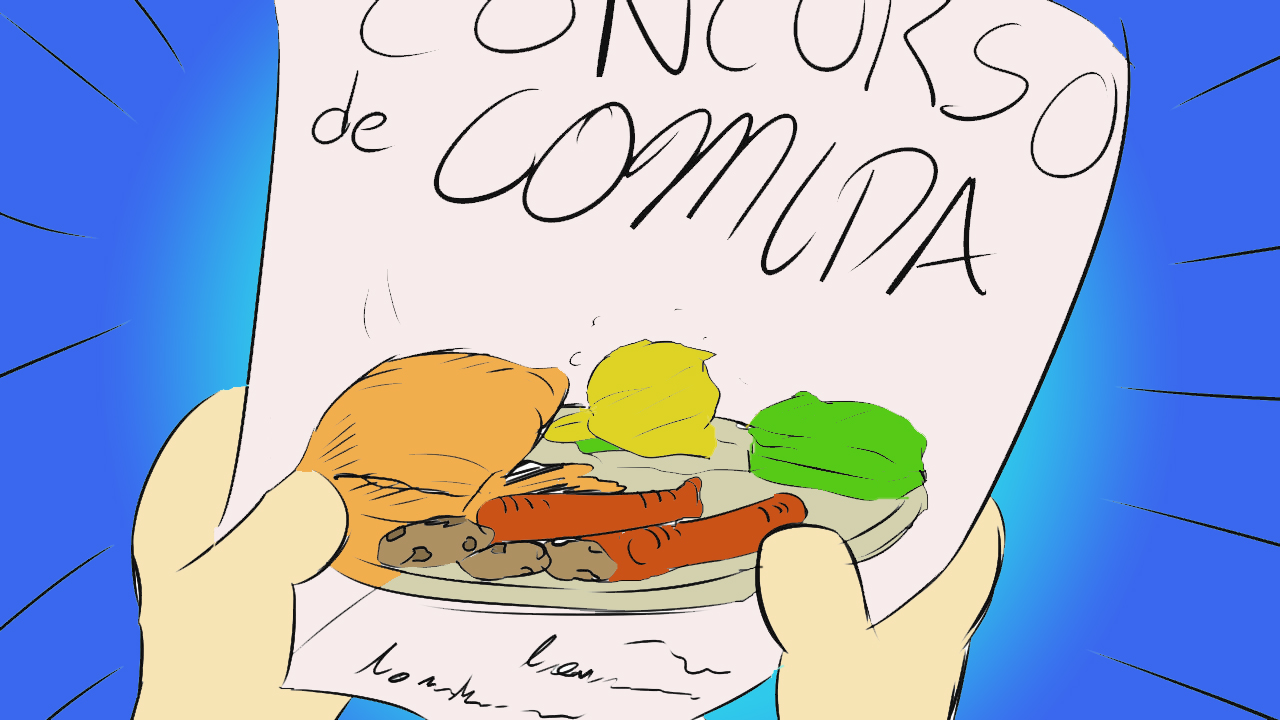 CONCURSO
de COMIDA